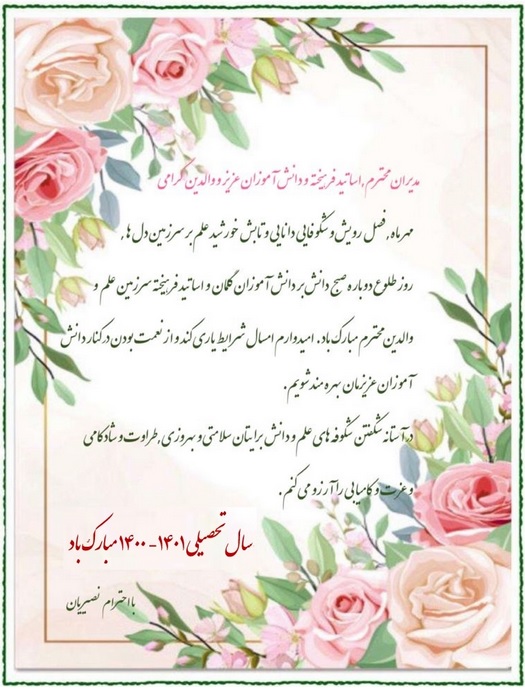 مدیران محترم ,اساتید فرهیخته و دانش آموزان عزیز و والدین گرامی
مهر ماه ,فصل رویش و شکوفایی دانایی و تابش خورشید علم بر سرزمین دل ها,
روز طلوع دوباره صبح دانش بر دانش آموزان گلمان و اساتید فرهیخته سرزمین علم و
والدین محترم مبارک باد. امیدوارم امسال شرایط یاری کند و از نعمت بودن در کنار دانش
آموزان عزیزمان بهره مند شویم.
در آستانه شکفتن شکوفه های علم و دانش برایتان سلامتی و بهروزی,طراوت و شادکامی
و عزت و کامیابی را آرزو می کنم.
سال تحصیلی ۱۴۰۱-۱۴۰۰ مبارک باد
با احترام نصیریان